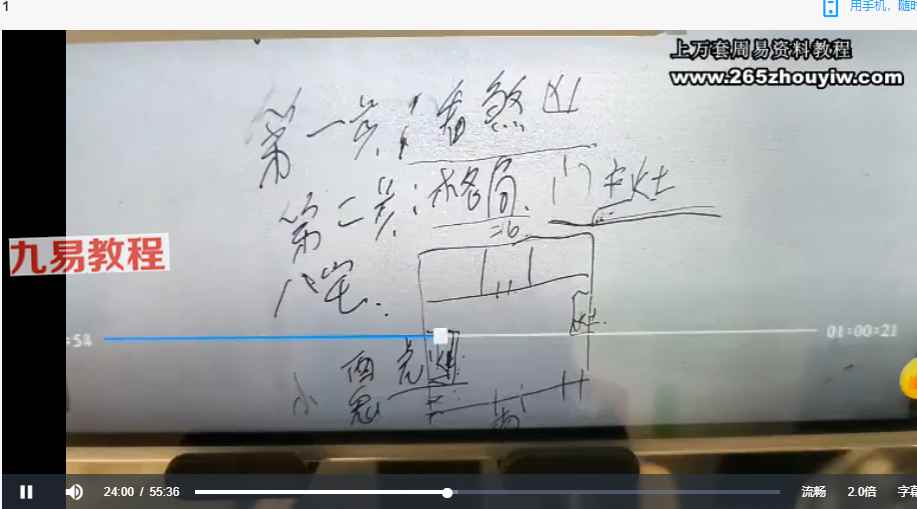 1
用手机，随时
上万套周易资料教程
www.265zhouyiw.com
第一步：看煞凶
第二步：格局.门主灶
二6
九易教程
八宅.
灶.
:58
01:00:21
西
24:00 / 55:36
流畅
2.0倍
字幕